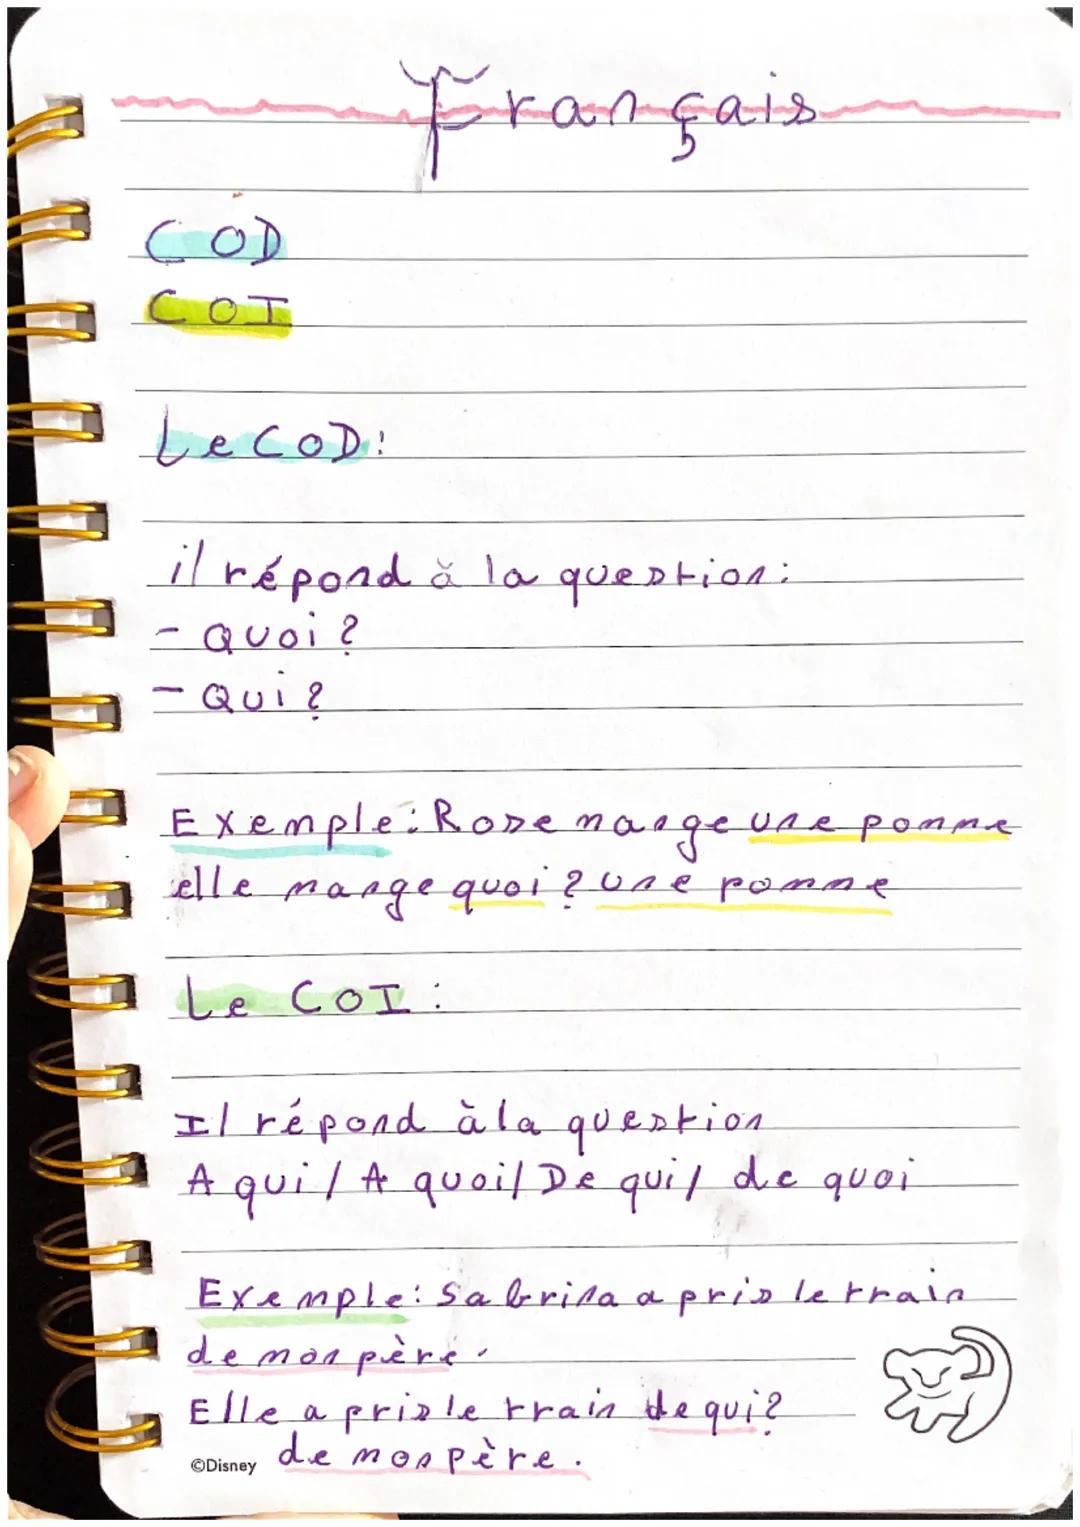 Français
COD
COI
Le COD:
il répond à la question:
- Quoi?
- Qui?
Exemple: Rose mange une pomme
elle mange quoi? une pomme
Le COI:
Il répond à la question
A qui / A quoi / De qui / de quoi
Exemple: Sabrina a pris le train
de mon père.
Elle a pris le train de qui?
de mon père.
©Disney